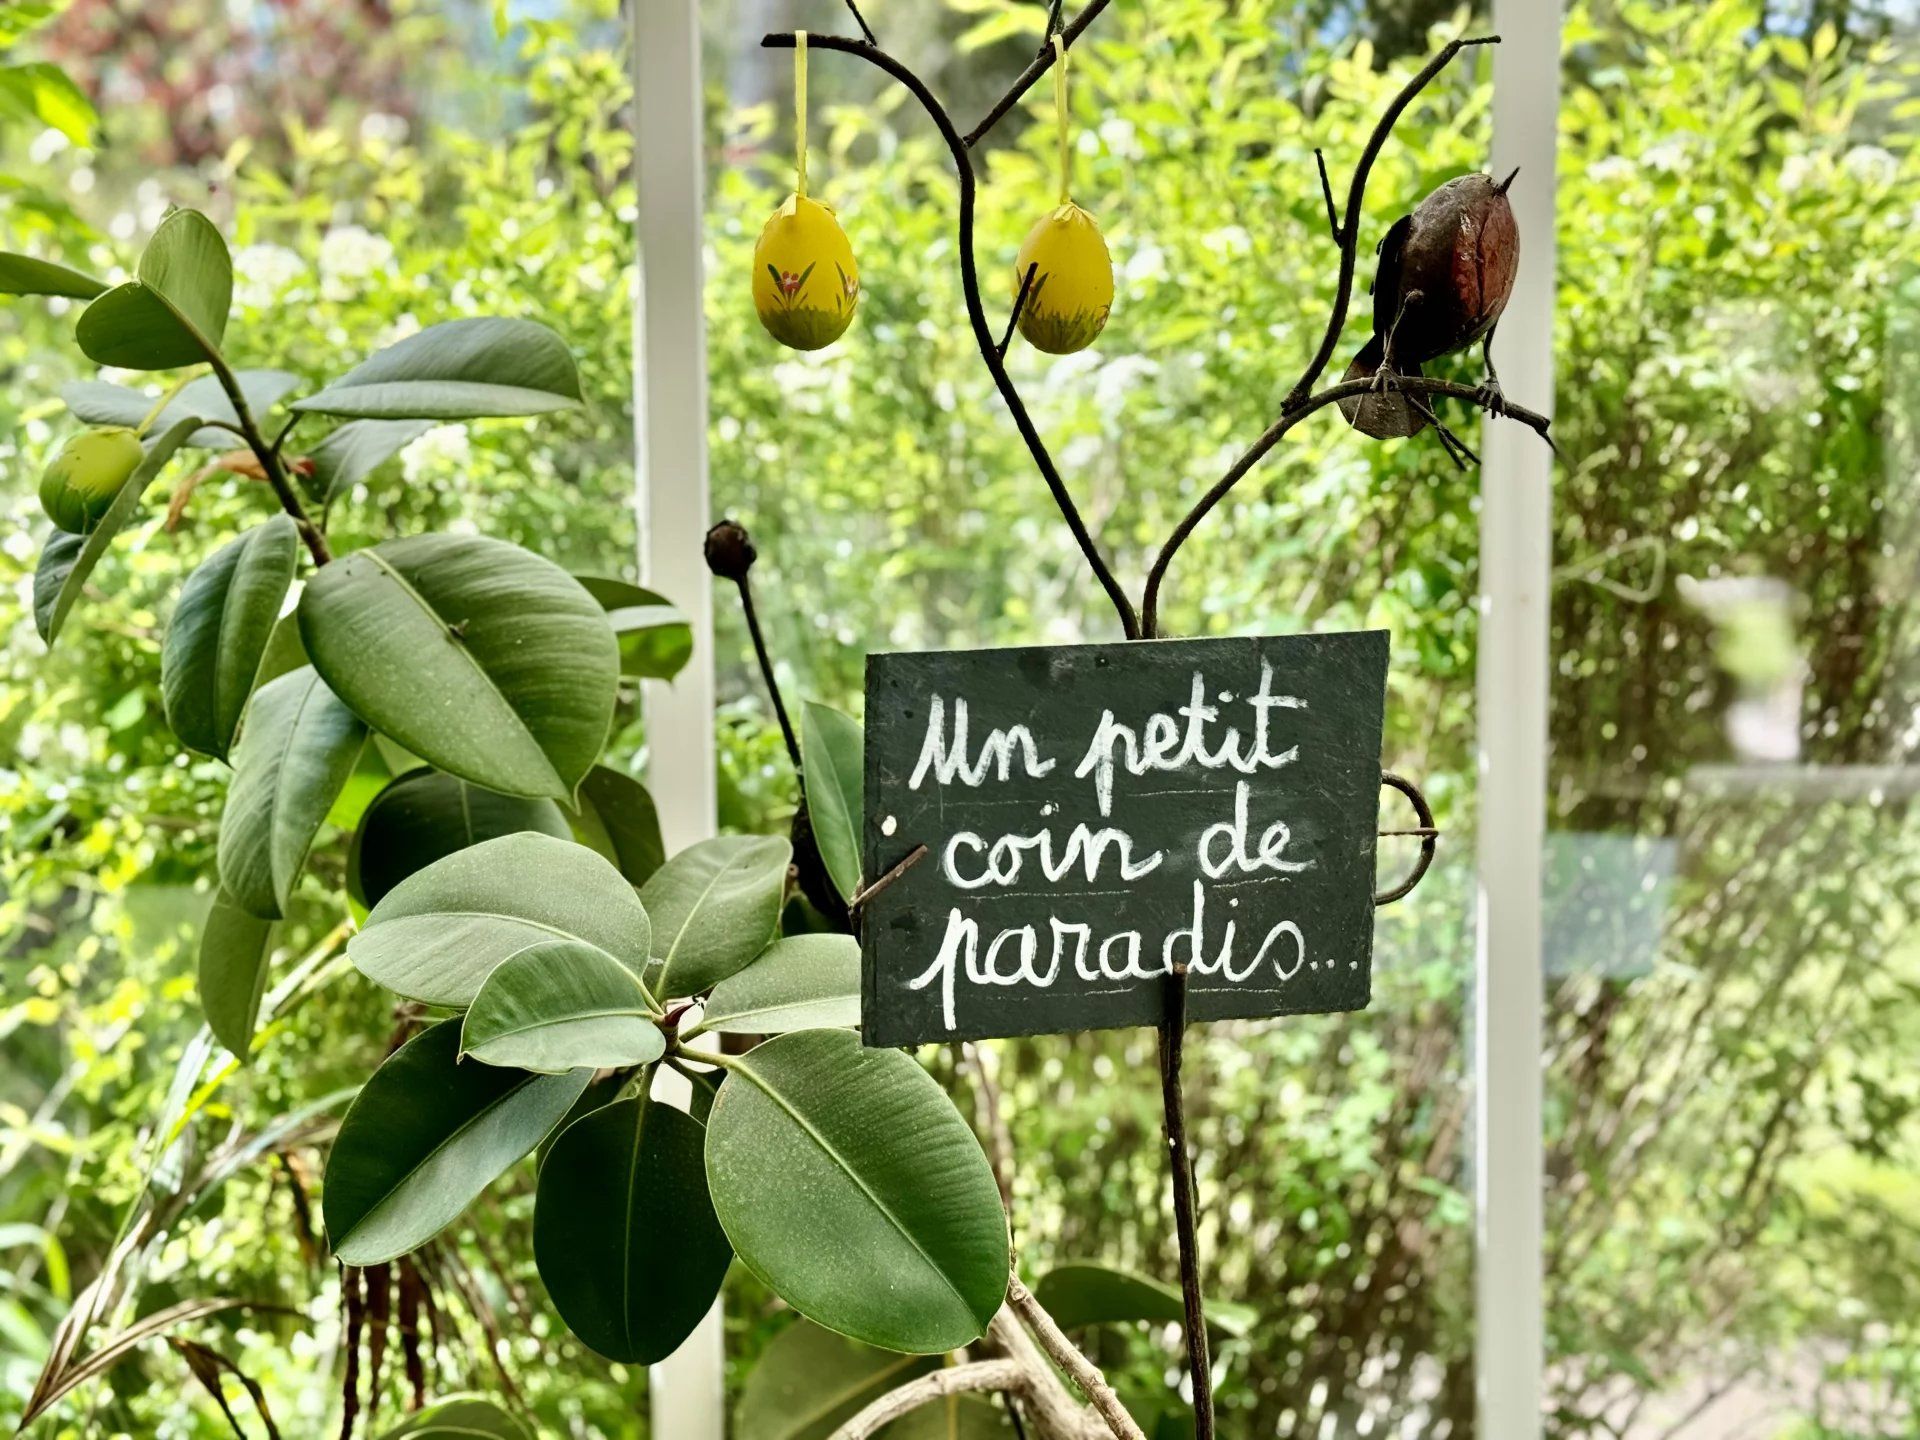 Un petit
coin de
paradis...